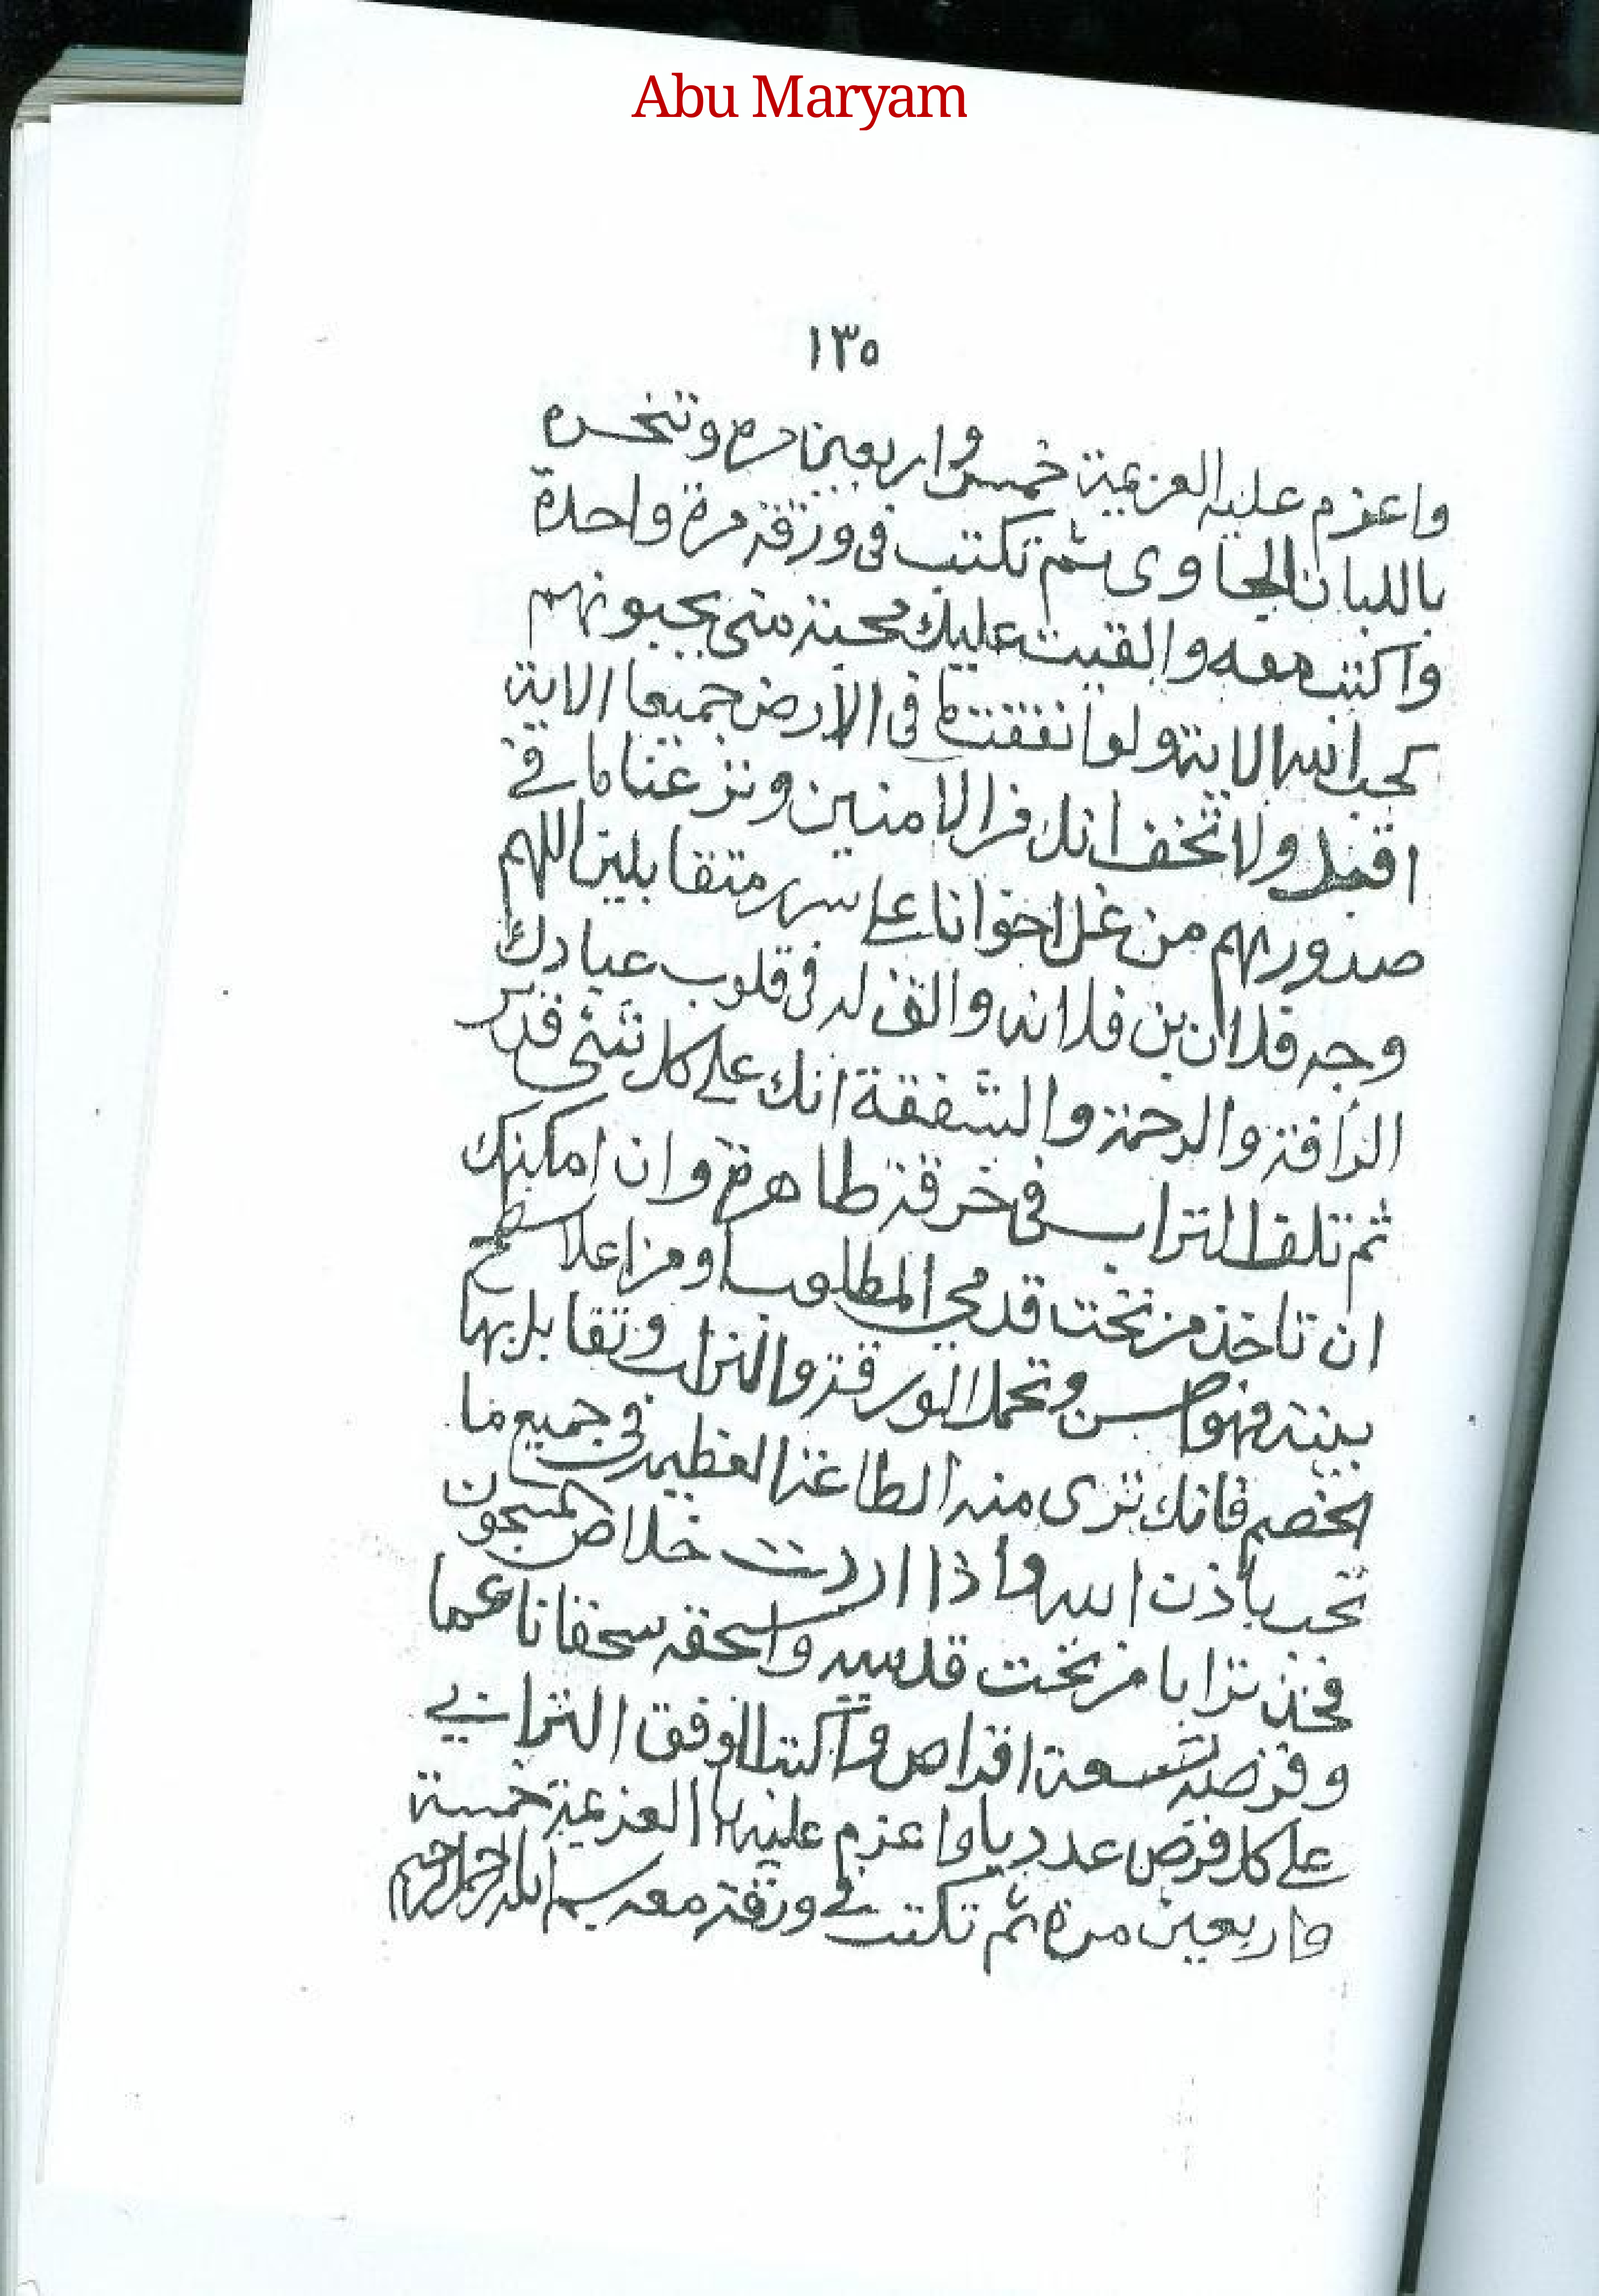 Abu Maryam
١٣٥
واعزم عليه العزيمة خمس واربعين مرة وتبخره
باللبان الجاوى ثم تكتب فى ورقة مرة واحدة
واكتب معه والقيت عليك محبة منى يحبونهم
كحب الله الاية ولو انفقت ما فى الارض جميعا الاية
اقبل ولا تخف انك من الامنين ونزعنا ما فى
صدورهم من غل اخوانا على سرر متقابلين اللهم
وجه فلان بن فلانه والق له فى قلوب عبادك
الرأفة والرحمة والشفقة انك على كل شئ قدير
ثم تلف التراب فى خرقة طاهرة وان امكنك
ان تاخذ من تحت قدمي المطلوب او من اعلا سطح
بيته فهو احسن وتحمل الورقة والتراب وتقابل بها
الخصم فانك ترى منه الطاعة العظيمة فى جميع ما
تحب باذن الله واذا اردت خلاص المسجون
فخذ ترابا من تحت قدميه واسحقه سحقا ناعما
وقرصه تسعة اقراص واكتب الوفق الترابي
على كل قرص عدديا واعزم عليها العزيمة خمسة
واربعين مرة ثم تكتب فى ورقة معه بسم الله الرحمن الرحيم